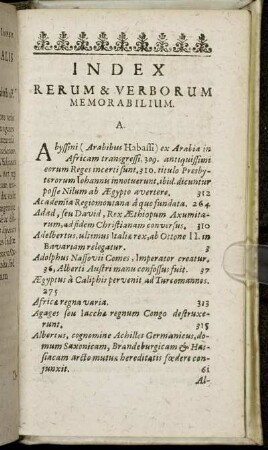 INDEX
RERUM & VERBORUM
MEMORABILIUM.
A.
Abyssini (Arabibus Habassi) ex Arabia in
Africam transgressi. 309. antiquissimi
eorum Reges incerti sunt. 310. titulo Presby-
terorum Iohannu innotuerunt, ibid. dicuntur
posse Nilum ab Ægypto avertere. 312
Academia Regiomontana à quo fundata. 264
Adad, seu David, Rex Æthiopum Axumita-
rum, ad fidem Christianam conversus. 310
Adelbertus, ultimus Italiæ rex, ab Ottone II. in
Bavariam relegatur. 3
Adolphus Nassovii Comes, Imperator creatur.
36, Alberti Austri manu confossus fuit. 37
Ægyptus à Caliphis pervenit, ad Turcomannos.
275
Africæ regna varia. 313
Agages seu Iacchæ regnum Congo destruxe-
runt. 315
Albertus, cognomine Achilles Germanicus, do-
mum Saxonicam, Brandeburgicam & Has-
siacam arcto mutuæ hereditatis fœdere con-
junxit. 61
Al-